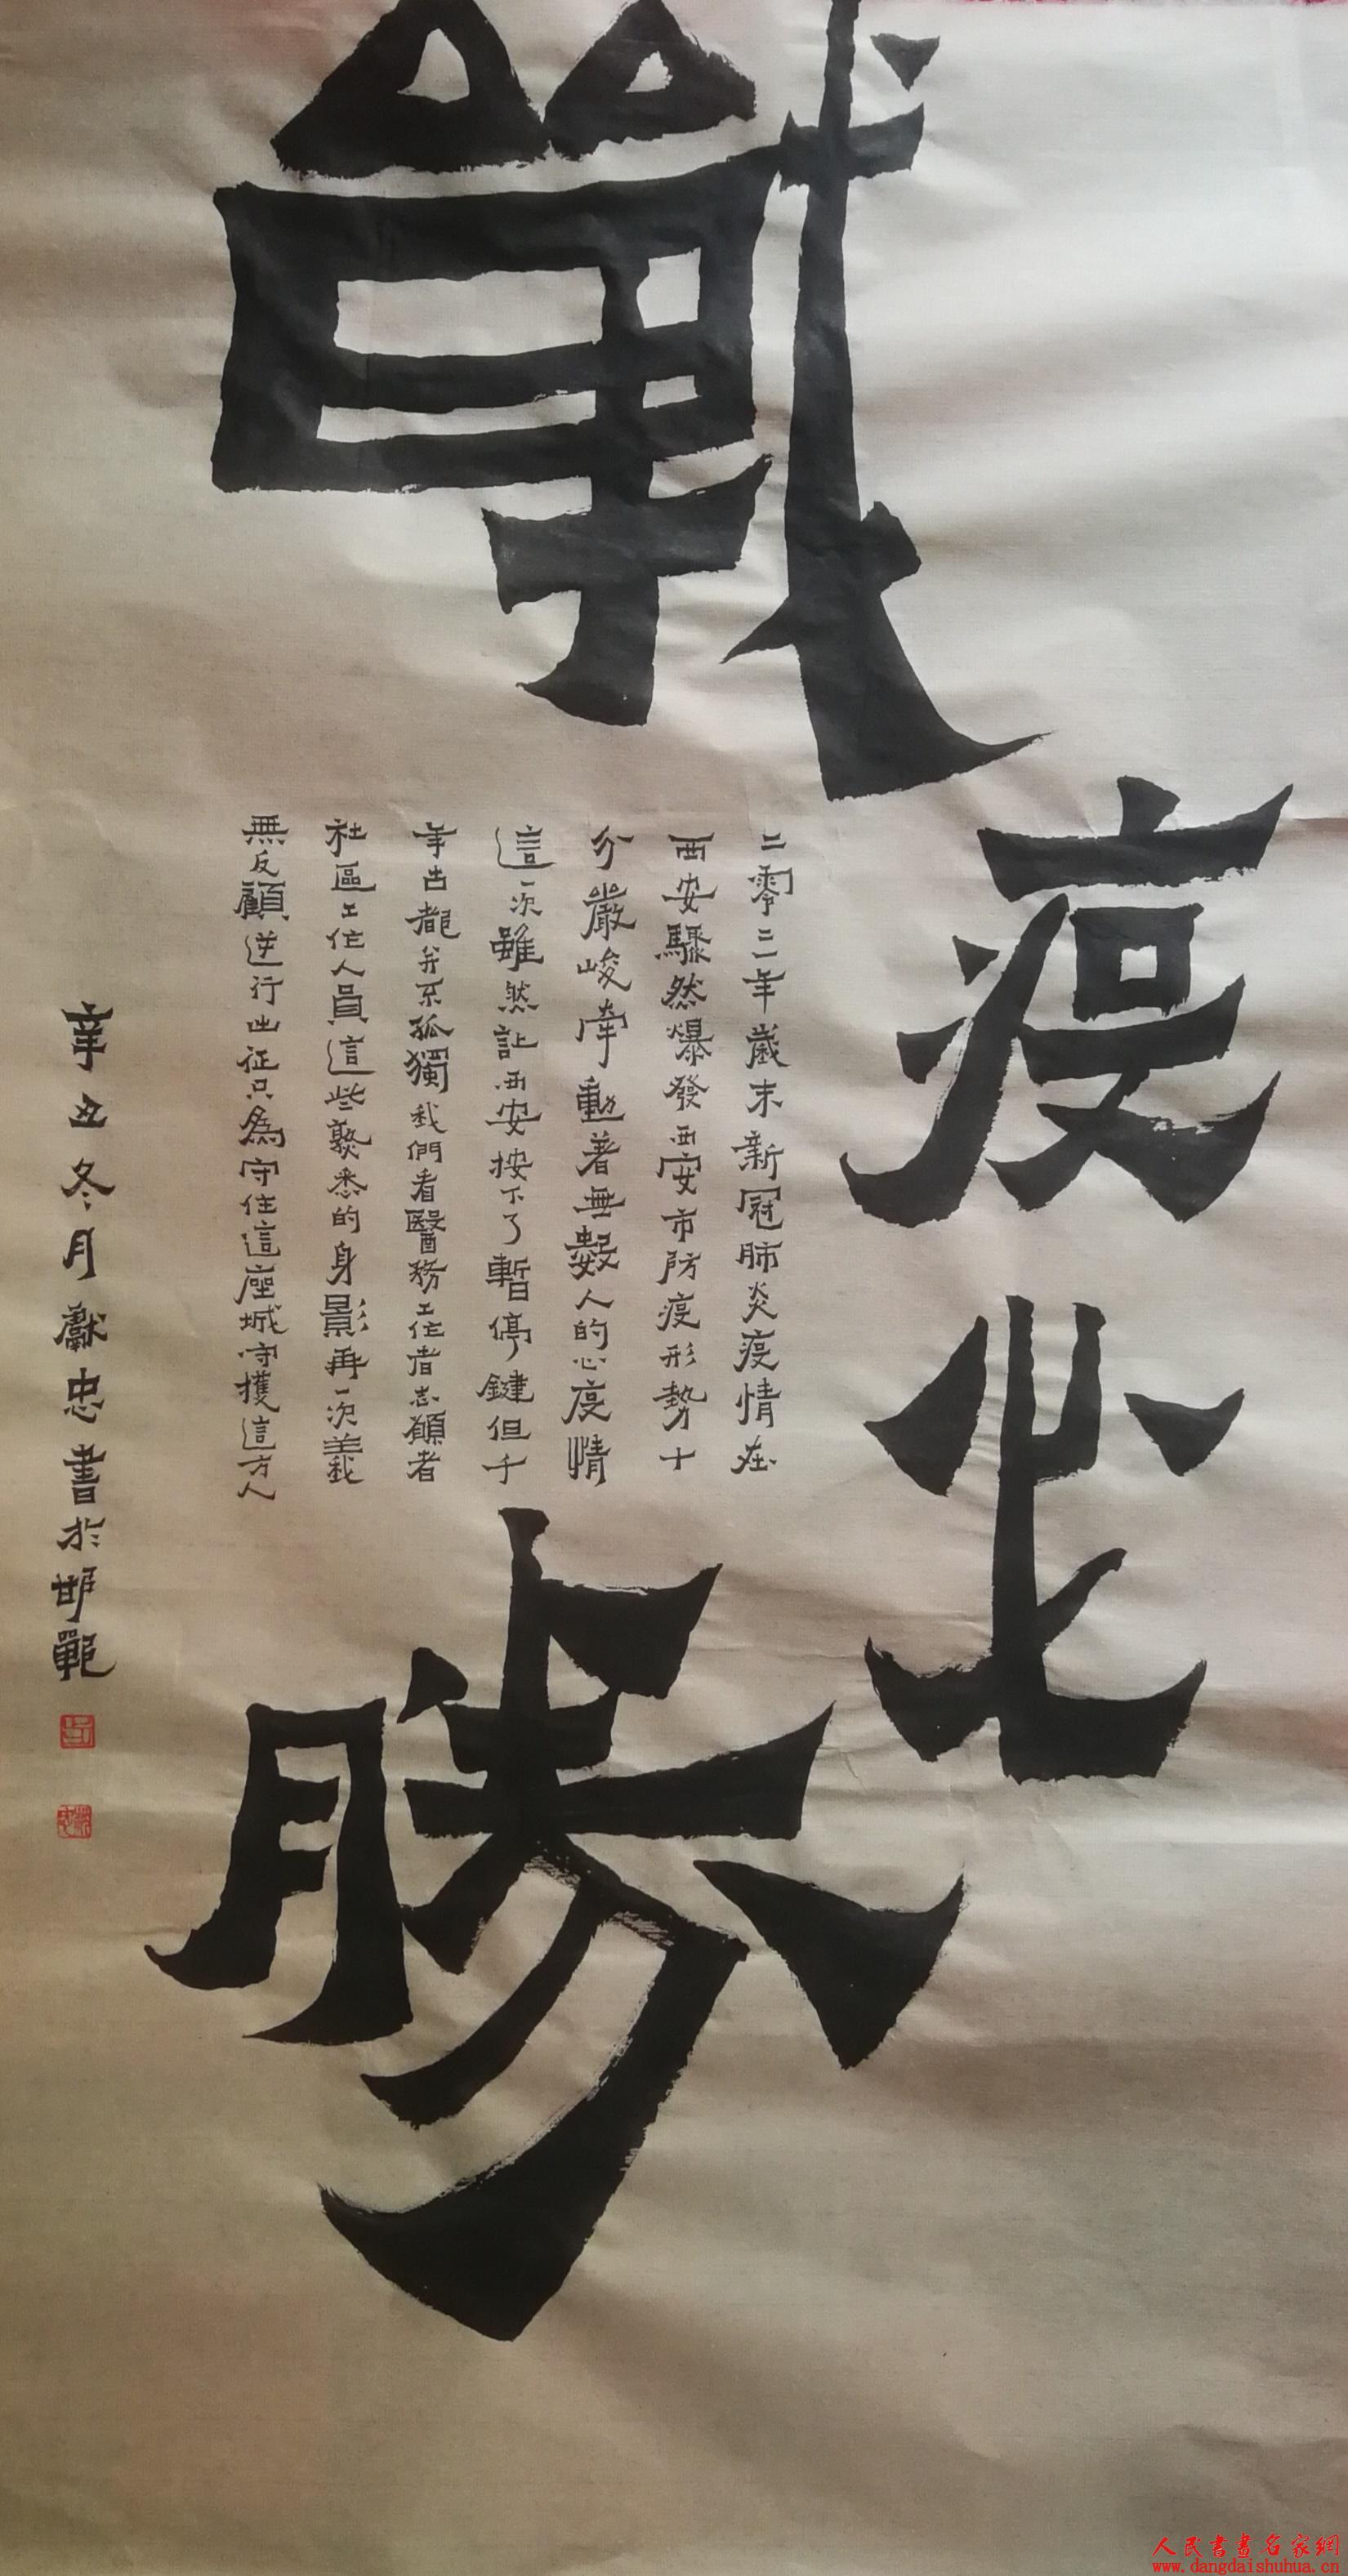 戰疫必勝
二零二一年歲末新冠肺炎疫情在
西安驟然爆發西安市防疫形勢十
分嚴峻牽動着無數人的心疫情
這一次雖然讓西安按下了暫停鍵但千
年古都并不孤獨我們看醫務工作者志願者
社區工作人員這些熟悉的身影再一次義
無反顧逆行出征只為守住這座城守護這方人
辛丑冬月獻忠書於邯鄲
人民書畫名家網
www.dangdaishuhua.cn